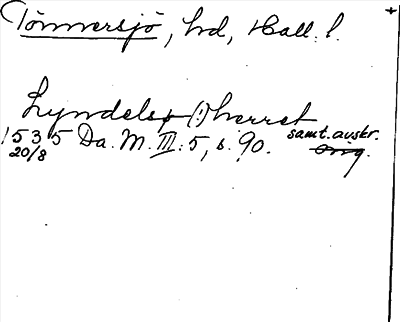 Tönnersjö, hd, Hall. l. +
Lyndelsø (!) herret
1535 Da. M. III: 5, s. 90. samt. avskr.
20/8 orig.